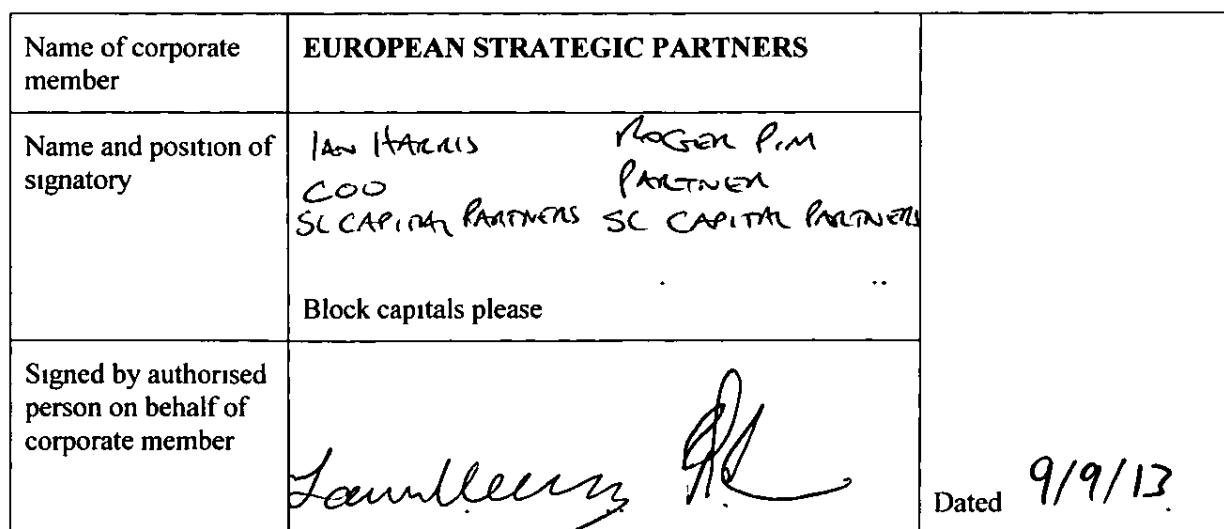 Name of corporate member
EUROPEAN STRATEGIC PARTNERS
Name and position of signatory
IAN HARRIS ROGER PIM
COO PARTNER
SL CAPITAL PARTNERS SL CAPITAL PARTNERS
Block capitals please
Signed by authorised person on behalf of corporate member
Dated 9/9/13